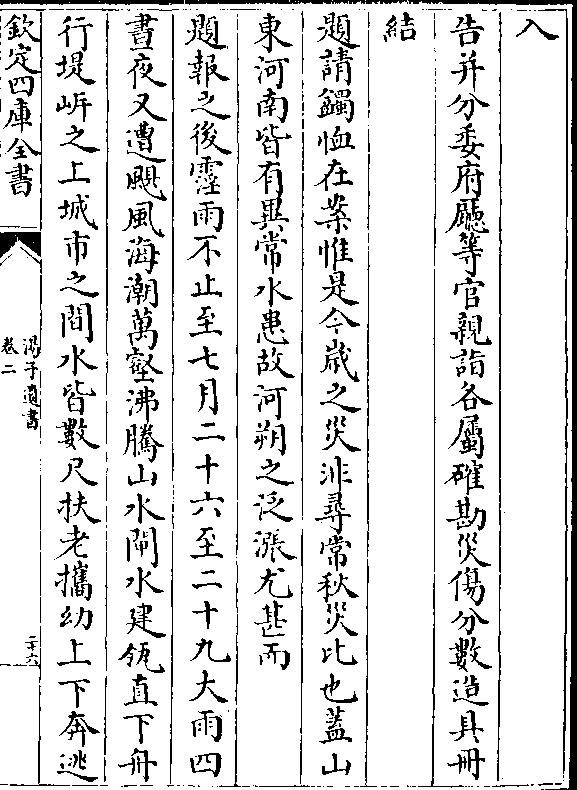 入
告并分委府廳等官親詣各屬確勘災傷分數造具冊
結
題請蠲恤在案惟是今歲之災非尋常秋災比也蓋山
東河南皆有異常水患故河朔之泛漲尤甚而
題報之後霪雨不止至七月二十六至二十九大雨四
晝夜又遭颶風海潮萬壑沸騰山水閘水建瓴直下舟
行堤岍之上城市之間水皆數尺扶老攜幼上下奔逃
欽定四庫全書
湯子遺書
卷二
二十六